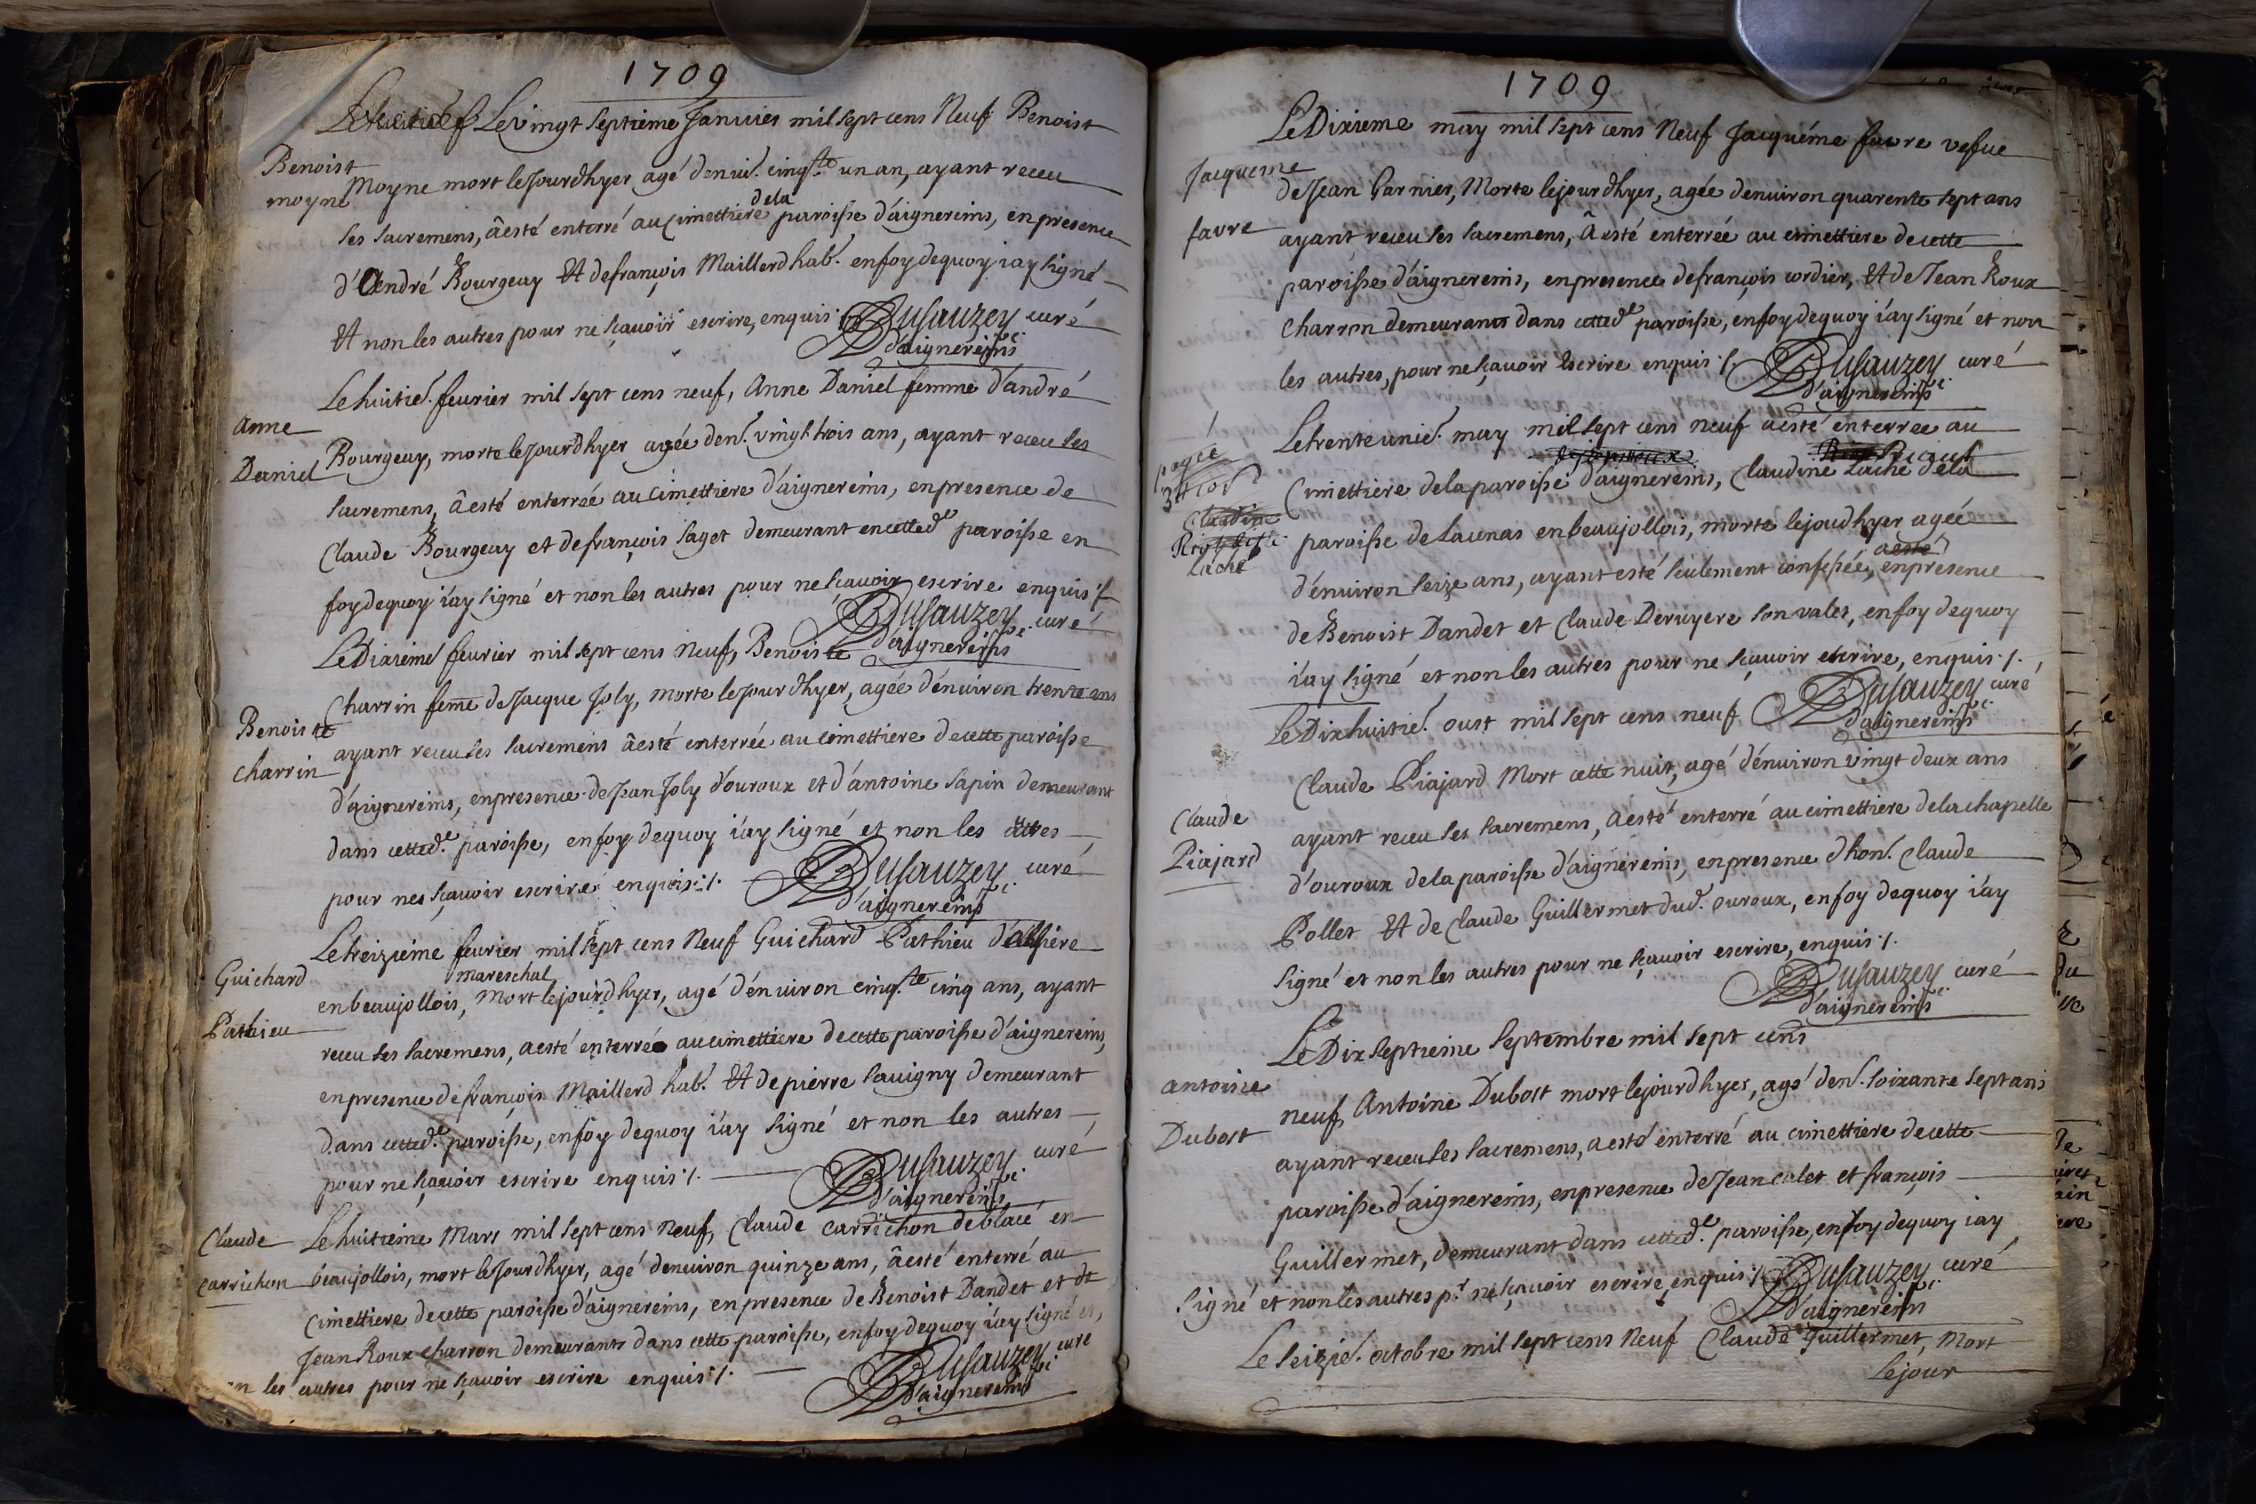 1709
Le vingt septieme Januier mil sept cens Neuf Benoist
Benoist
moyne
Moyne mort le Jour d'hyer agé d'enui. cinq.te un an, ayant receu
ses sacremens, â esté enterré au cimettiere de la paroisse d'aignereins, en presence
d'André Bourgeay Et de françois Maillerd hab. en foy de quoy i'ay signé
Et non les autres pour ne sçauoir escrire, enquis ./. Dusauzey curé
d'aignereins
Le huitie. feurier mil sept cens neuf, Anne Daniel femme d'andré
anne
Daniel
Bourgeay, morte le Jour d'hyer agée d'en. vingt trois ans, ayant receu les
sacremens, â esté enterrée au cimettiere d'aignereins, en presence de
Claude Bourgeay et de françois saget demeurant en cette d.e paroisse en
foy de quoy i'ay signé et non les autres pour ne sçauoir escrire enquis ./.
Dusauzey curé
d'aignereins
Le Dixieme feurier mil sept cens Neuf, Benoiste
Charrin feme de Jacque Joly, morte le Jour d'hyer, agée d'enuiron trente ans
Benoiste
charrin
ayant receu ses sacremens â esté enterrée au cimettiere de cette paroisse
d'aignereins, en presence de Jean Joly d'ouroux et d'antoine sapin demeurant
dans cette d.e paroisse, en foy de quoy i'ay signé et non les autres
pour ne sçauoir escrire enquis ./. Dusauzey curé
d'aignereins
Le treizieme feurier mil sept cens Neuf Guichard Pathieu
Guichard
Pathieu
en beaujollois, mareschal mort le jour d'hyer, agé d'enuiron cinq.te cinq ans, ayant
receu ses sacremens, a esté enterré au cimettiere de cette paroisse d'aignereins,
en presence de françois Maillerd hab. Et de pierre sauigny demeurant
dans cette d.e paroisse, en foy de quoy i'ay signé et non les autres
pour ne sçauoir escrire enquis ./. Dusauzey curé
d'aignereins
Claude
carrichon
Le huitieme Mars mil sept cens neuf, Claude carrichon de blacé en
beaujollois, mort le Jour d'hyer, agé d'enuiron quinze ans, â esté enterré au
cimettiere de cette paroisse d'aignereins, en presence de Benoist Dandet et de
Jean Roux charron demeurants dans cette paroisse, en foy de quoy i'ay signé et
les autres pour ne sçauoir escrire enquis ./. Dusauzey curé
d'aignereins
1709
Le Dixieme may mil sept cens Neuf Jacquéme favre vefue
Jacqueme
favre
de Jean Garnier, Morte le jour d'hyer, agée d'enuiron quarente sept ans
ayant receu ses sacremens, â esté enterrée au cimettiere de cette
paroisse d'aignereins, en presence de françois cordier, Et de Jean Roux
charron demeurants dans cette d.e paroisse, en foy de quoy i'ay signé et non
les autres, pour ne sçauoir escrire enquis ./. Dusauzey curé
d'aignereins
Le trente unie. may mil sept cens neuf a esté enterrée au
Claudine
Laché
Cimettiere de la paroisse d'aignereins, Claudine Laché de la
paroisse de Lacenas en beaujollois, morte le jou d'hyer agée
d'enuiron seize ans, ayant esté seulement confessée, en presence
de Benoist Dandet et Claude Deruyere son valet, en foy de quoy
i'ay signé et non les autres pour ne sçauoir escrire, enquis ./.
Dusauzey curé
d'aignereins
Le Dixhuitie. oust mil sept cens neuf
Claude Piajard Mort cette nuit, agé d'enuiron vingt deux ans
Claude
Piajard
ayant receu ses sacremens, â esté enterré au cimettiere de la chapelle
d'ouroux de la paroisse d'aignereins, en presence d'hon. Claude
Pollet Et de Claude Guillermet du d. ouroux, en foy de quoy i'ay
signé et non les autres pour ne sçauoir escrire, enquis ./.
Dusauzey curé
d'aignereins
Le Dix septieme septembre mil sept cens
antoine
Dubost
neuf Antoine Dubost mort le jour d'hyer, agé d'en. soixante sept ans
ayant receu ses sacremens, a esté enterré au cimettiere de cette
paroisse d'aignereins, en presence de Jean calet et françois
Guillermet, demeurant dans cette d.e paroisse, en foy de quoy i'ay
signé et non les autres p.r ne sçauoir escrire, enquis ./. Dusauzey curé
d'aignereins
Le seizie. octobre mil sept cens Neuf Claude Guillermet, Mort
Le jour